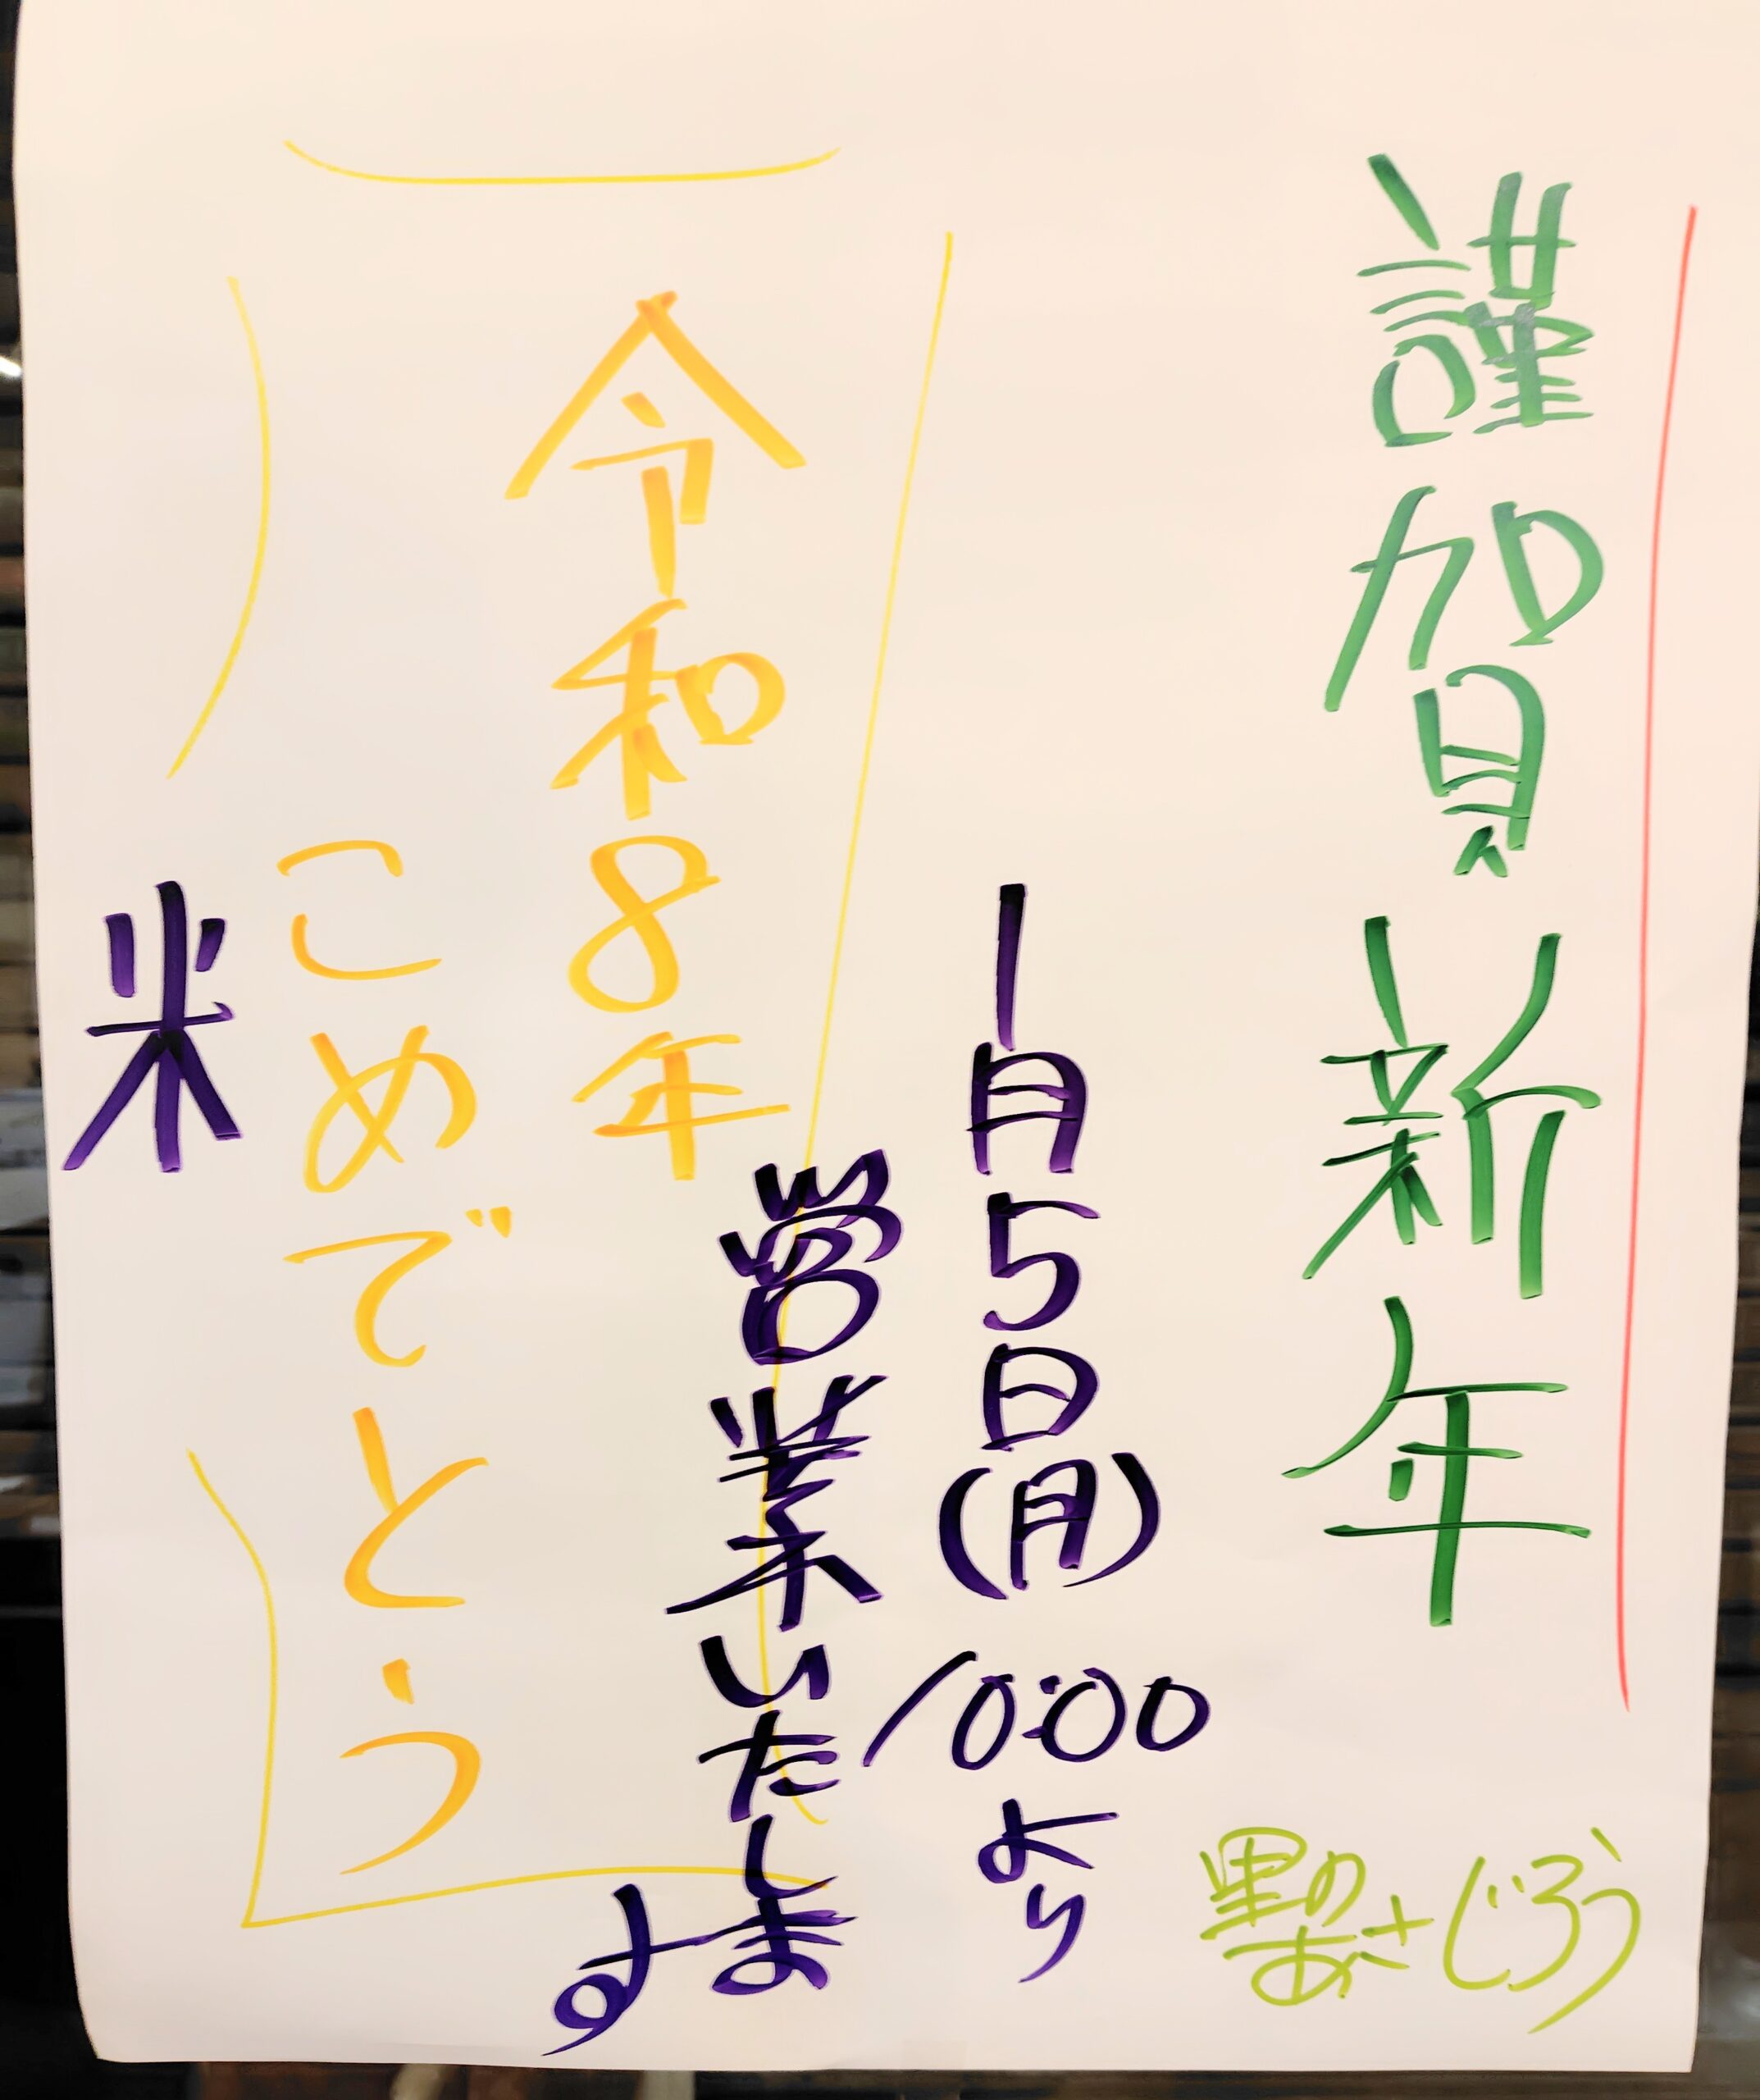 謹賀新年
1月5日(月) 10:00より
営業いたします
令和8年
こめでとう
米
里のあさじろう